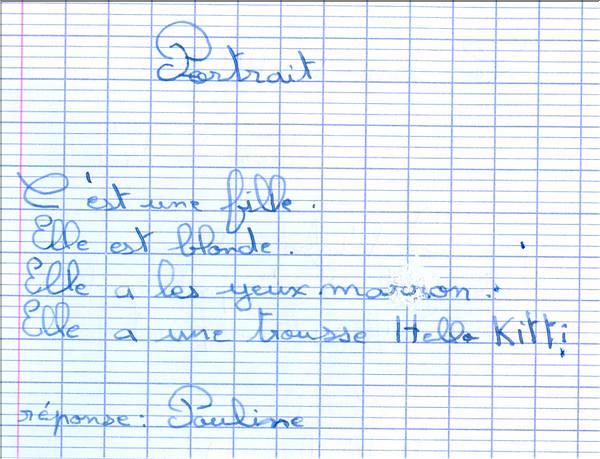 Portrait
C'est une fille.
Elle est blonde.
Elle a les yeux marron.
Elle a une trousse Hello Kitti
réponse: Pauline